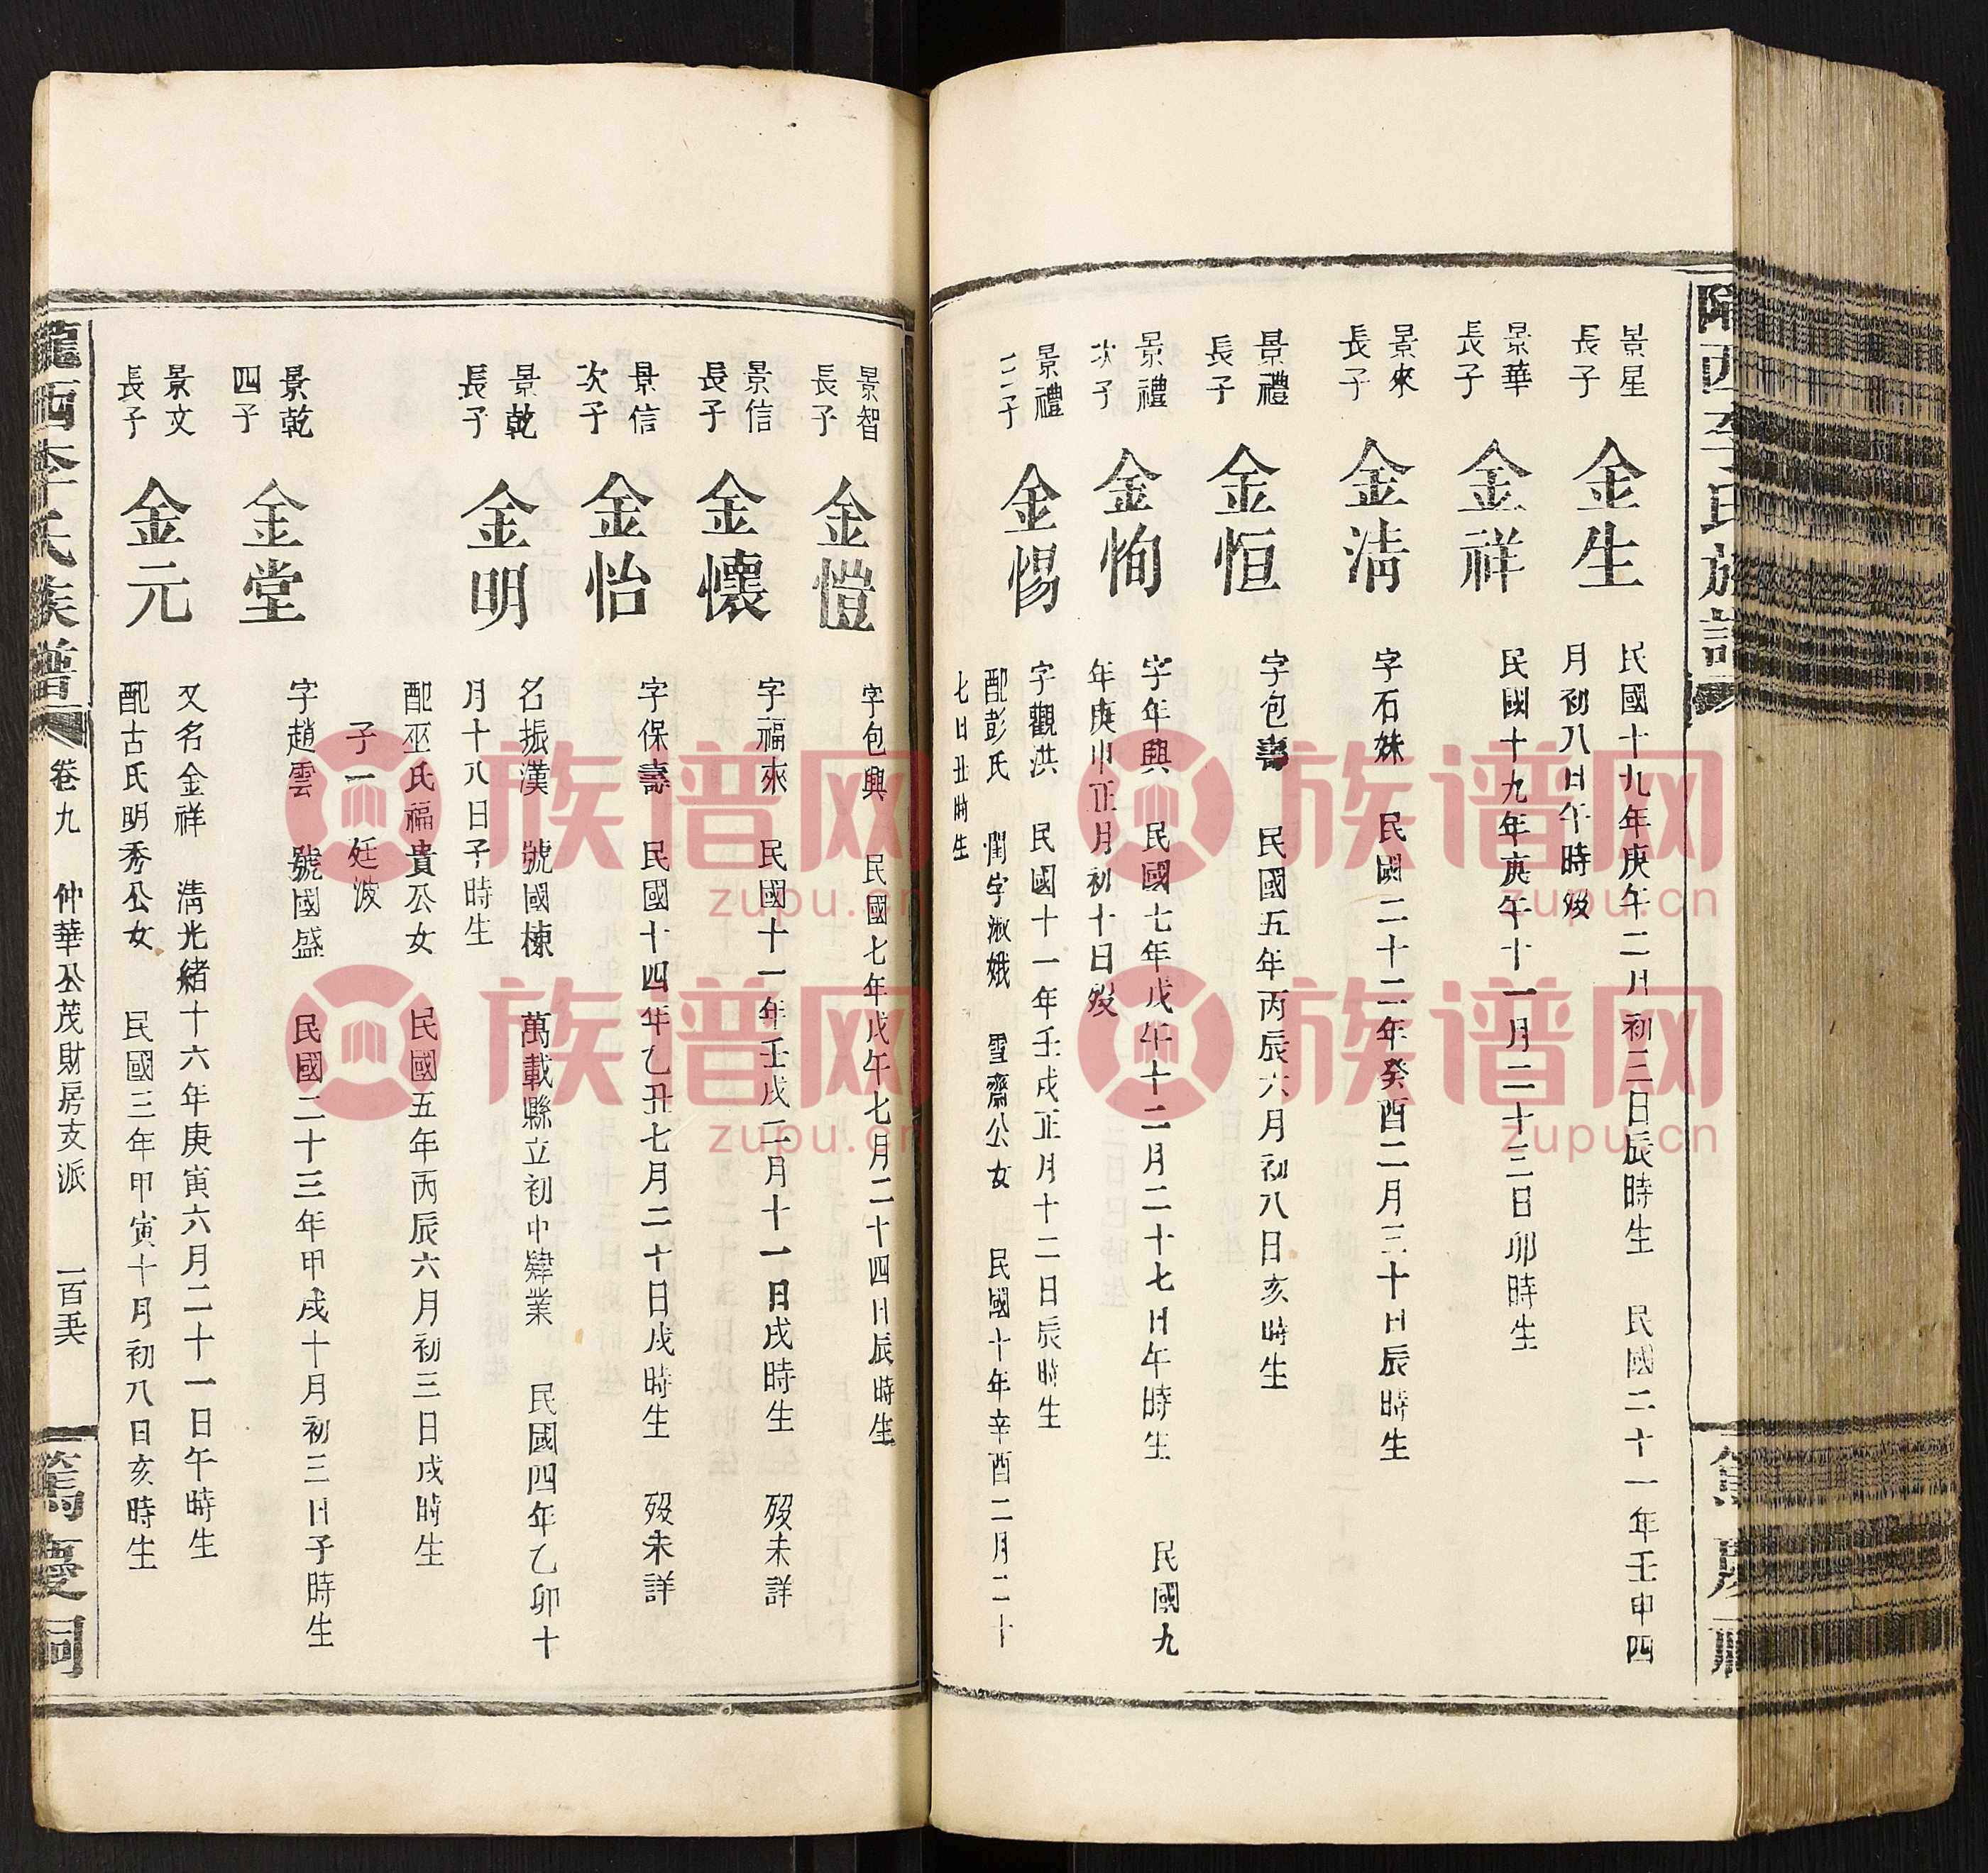 景星
長子
金生
民國十九年庚午二月初三日辰時生　民國二十一年壬申四
月初八日午時歿
景華
長子
金祥
民國十九年庚午十一月二十三日卯時生
景來
長子
金淸
字石妹　民國二十二年癸酉二月三十日辰時生
景禮
長子
金恒
字包壽　民國五年丙辰六月初八日亥時生
景禮
次子
金恂
字年興　民國七年戊午十二月二十七日午時生　民國九
年庚申正月初十日歿
景禮
三子
金惕
字觀洪　民國十一年壬戌正月十二日辰時生
配彭氏　閨字淑娥　雪齋公女　民國十年辛酉二月二十
七日丑時生
景智
長子
金愷
字包興　民國七年戊午七月二十四日辰時生
景信
長子
金懷
字福來　民國十一年壬戌二月十一日戌時生　歿未詳
景信
次子
金怡
字保壽　民國十四年乙丑七月二十日戌時生　歿未詳
景乾
長子
金明
名振漢　號國棟　萬載縣立初中肄業　民國四年乙卯十
月十八日子時生
配巫氏福貴公女　民國五年丙辰六月初三日戌時生
子一　廷波
景乾
四子
金堂
字趙雲　號國盛　民國二十三年甲戌十月初三日子時生
景文
長子
金元
又名金祥　淸光緒十六年庚寅六月二十一日午時生
配古氏明秀公女　民國三年甲寅十月初八日亥時生
隴西李氏族譜　卷九　仲華公茂財房支派　一百
篤慶祠
族谱网
zupu.cn
族谱网
zupu.cn
族谱网
zupu.cn
族谱网
zupu.cn